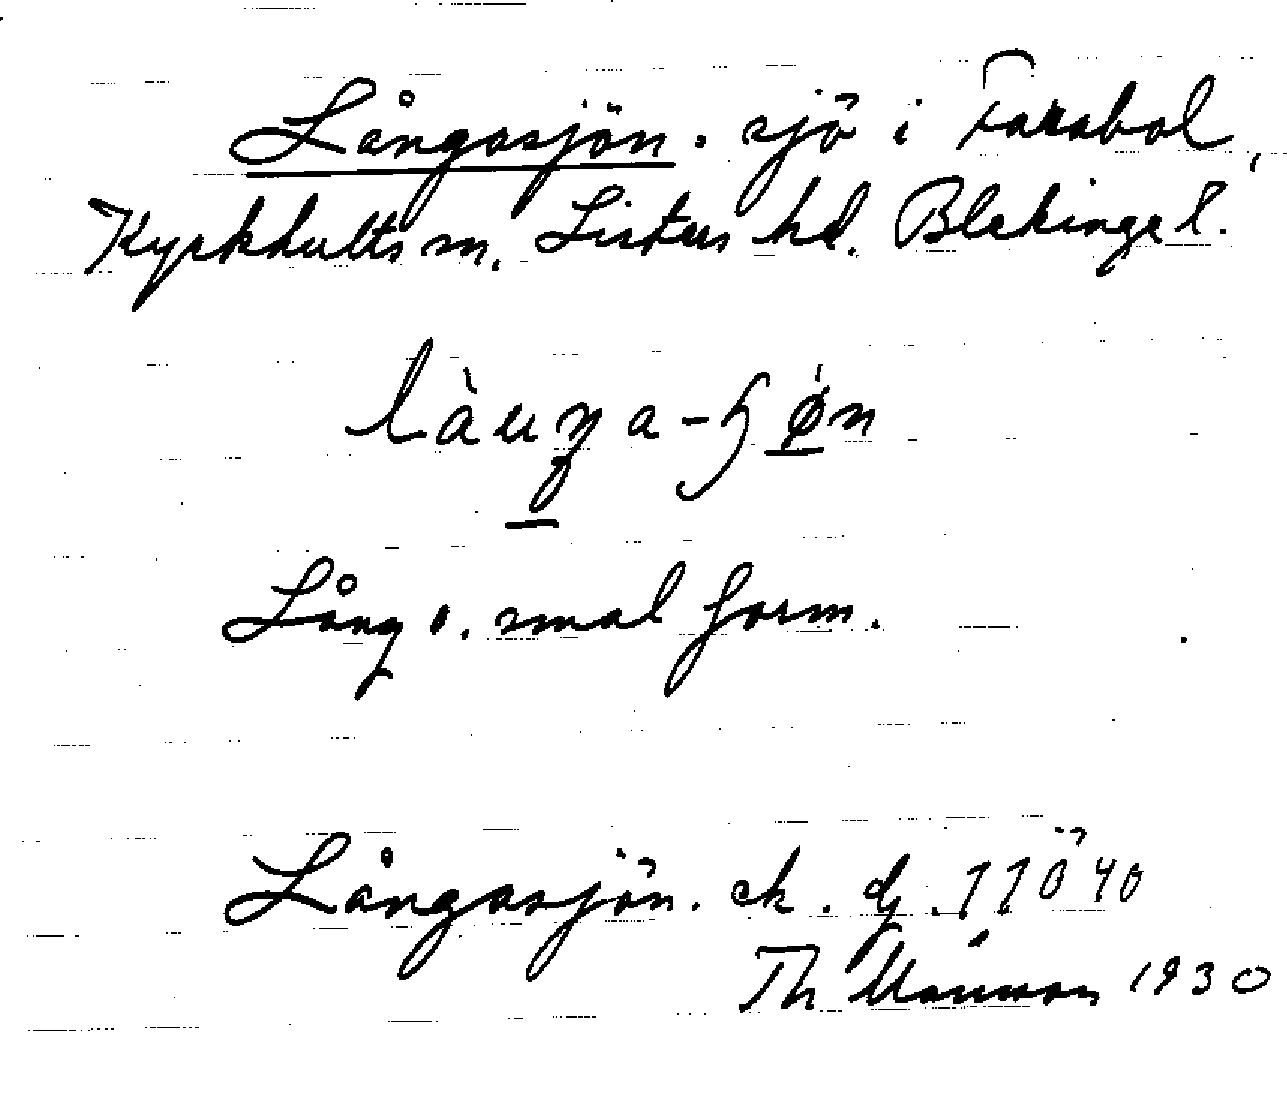 Långasjön. sjö i Farabol,
Kyrkhults sn. Listers hd. Blekinge l.
làuŋa-ɧø̀n
Lång o. smal form.
Långasjön. ek. bl. 11 Ö 40
1930